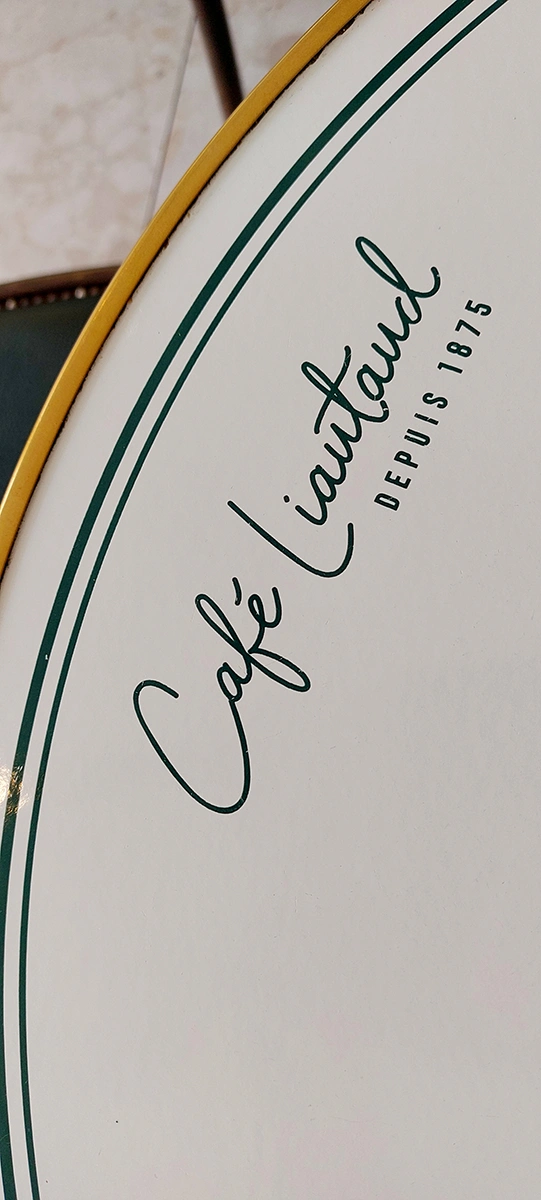 Café Liautaud
DEPUIS 1875